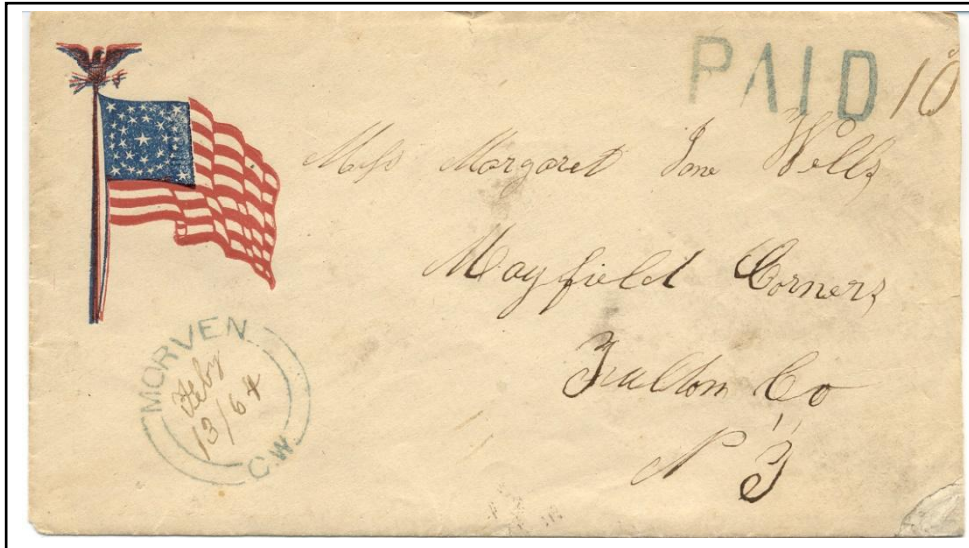 PAID 10
Miss Margaret Jane Wells
Mayfield Corners
Fulton Co
N Y
MORVEN
Feby
13/64
C.W.